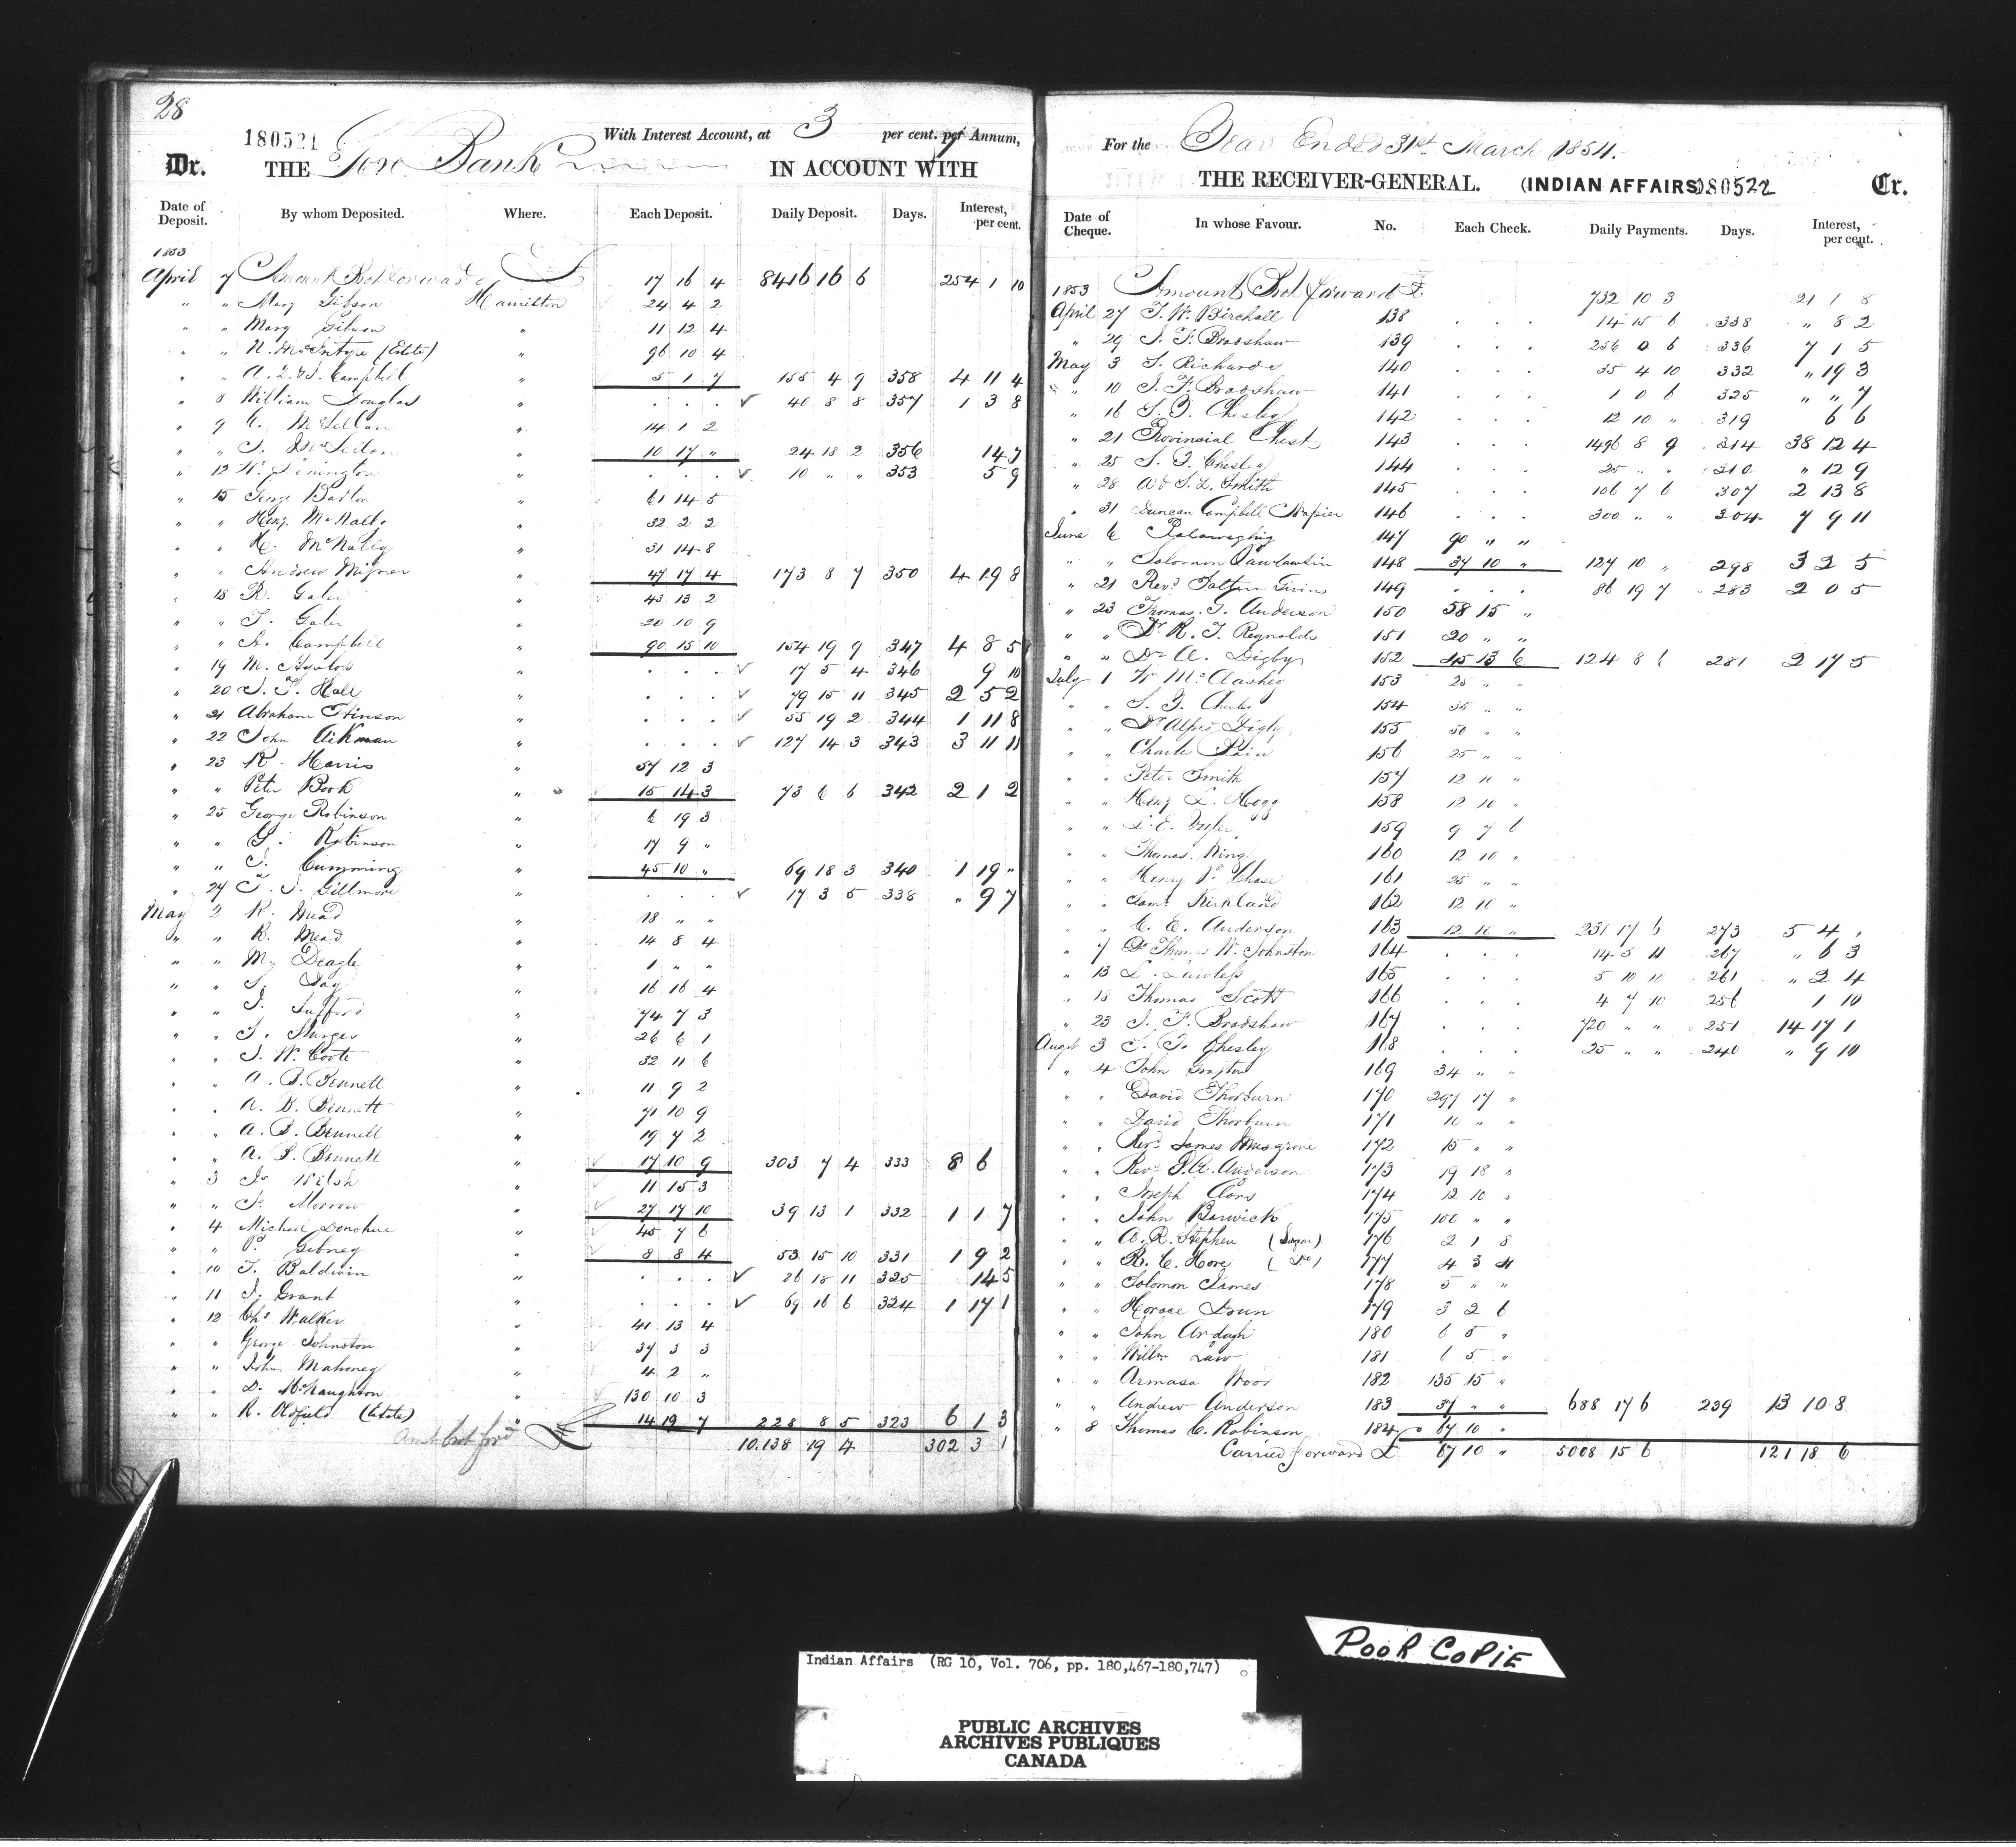 28
180521
With Interest Account, at 3 per cent. per Annum,
Dr. THE Gore Bank IN ACCOUNT WITH
Date of Deposit. By whom Deposited. Where. Each Deposit. Daily Deposit. Days. Interest, per cent.
1853
April 7 Amount Brot forward £ 17 16 4 8416 16 6 254 1 10
" " Mary Gibson Hamilton 24 4 2
" " Mary Gibson " 11 12 4
" " N. McIntyre (Estate) " 96 10 4
" " Campbell " 5 1 7 155 4 9 358 4 11 4
" 8 William Douglas " . . . 40 8 8 357 1 3 8
" 9 McLellan " 14 1 2
" " " 10 17 " 24 18 2 356 14 7
" 12 " . . . 10 " " 353 5 9
" 15 George Barton " 61 14 5
" " Heny McNalty " 32 2 2
" " H. " 31 14 8
" " Andrew Misner " 47 17 4 173 8 7 350 4 19 8
" 18 R. " 43 13 2
" " " 20 10 9
" " A. Campbell " 90 15 10 154 19 9 347 4 8 5
" 19 M. " . . . 17 5 4 346 9 10
" 20 Hall " . . . 79 15 11 345 2 5 2
" 21 Abraham Stinson " . . . 55 19 2 344 1 11 8
" 22 John Aikman " . . . 127 14 3 343 3 11 11
" 23 R. Harris " 57 12 3
" " Peter Book " 15 14 3 73 6 6 342 2 1 2
" 25 George Robinson " 6 19 3
" " G. Robinson " 17 9 "
" " Cumming " 45 10 " 69 18 3 340 1 19 "
" 27 Gillmore " . . . 17 3 5 338 " 9 7
May 2 R. Mead " 18 " "
" " R. Mead " 14 8 4
" " My Deagle " 1 " "
" " Day " 16 16 4
" " " 74 7 3
" " Sturges " 26 6 1
" " J. W. Coote " 32 11 6
" " A. B. Bennett " 11 9 2
" " A. B. Bennett " 71 10 9
" " A. B. Bennett " 19 7 2
" " A. B. Bennett " 17 10 9 303 7 4 333 8 6
" 3 Welsh " 11 15 3
" " Morrow " 27 17 10 39 13 1 332 1 1 7
" 4 Michael Donohue " 45 7 6
" " Gibney " 8 8 4 53 15 10 331 1 9 2
" 10 Baldwin " . . . 26 18 11 325 14 5
" 11 Grant " . . . 69 16 6 324 1 17 1
" 12 Chs Walker " 41 13 4
" " George Johnston " 37 3 3
" " John Mahoney " 4 2 "
" " D. McNaughton " 130 10 3
" " R. Oldfield (Estate) " 14 19 7 228 8 5 323 6 1 3
Amt brot ford £ 10.138 19 4 302 3 1
For the Year Ended 31st March 1854.
THE RECEIVER-GENERAL. (INDIAN AFFAIRS) 180522 Cr.
Date of Cheque. In whose Favour. No. Each Check. Daily Payments. Days. Interest, per cent.
1853 Amount Brot forward £ 732 10 3 21 1 8
April 27 Birchall 138 . . . 14 15 6 338 " 8 2
" 29 J. F. Bradshaw 139 . . . 256 0 6 336 7 1 5
May 3 S. Richards 140 . . . 35 4 10 332 " 19 3
" 10 J. F. Bradshaw 141 . . . 1 0 6 325 " " 7
" 16 S. Y. Chesley 142 . . . 12 10 " 319 6 6
" 21 Provincial Chest 143 . . . 1496 8 9 314 38 12 4
" 25 S. Y. Chesley 144 . . . 25 " " 310 " 12 9
" 28 Smith 145 . . . 106 7 6 307 2 13 8
" 31 Duncan Campbell Napier 146 . . . 300 " " 304 7 9 11
June 6 147 90 " "
" " Solomon 148 37 10 " 127 10 " 298 3 2 5
" 21 Revd 149 . . . 86 19 7 283 2 0 5
" 23 Thomas G. Anderson 150 58 15 "
" " Dr R. J. Reynolds 151 20 " "
" " Dr A. Digby 152 45 13 6 124 8 6 281 2 17 5
July 1 153 25 " "
" " 154 35 " "
" " Dr Alfred Digby 155 50 " "
" " Charles 156 25 " "
" " Peter Smith 157 12 10 "
" " Heny L. Hogg 158 12 10 "
" " 159 9 7 6
" " Thomas King 160 12 10 "
" " Henry P. Chase 161 25 " "
" " Saml Kirkland 162 12 10 "
" " C. E. Anderson 163 12 10 " 231 17 6 273 5 4 "
" 7 Dr Thomas W. Johnston 164 . . . 14 5 11 267 " 6 3
" 13 Lawless 165 . . . 5 10 10 261 " 2 4
" 18 Thomas Scott 166 . . . 4 7 10 256 1 10
" 23 J. F. Bradshaw 167 . . . 720 " " 251 14 17 1
Augst 3 S. Y. Chesley 168 . . . 25 " " 240 " 9 10
" 4 John Grafton 169 34 " "
" " David Thorburn 170 297 17 "
" " David Thorburn 171 10 " "
" " Revd James Musgrove 172 15 " "
" " Revd Anderson 173 19 18 "
" " Joseph 174 12 10 "
" " John Barwick 175 100 " "
" " A. R. Stephen 176 2 1 8
" " R. C. Hore (Do) 177 4 3 4
" " Solomon James 178 5 " "
" " Horace 179 3 2 6
" " John Ardagh 180 6 5 "
" " Willm Law 181 6 5 "
" " Armasa Wood 182 135 15 "
" " Andrew Anderson 183 37 " " 688 17 6 239 13 10 8
" 8 Thomas C. Robinson 184 67 10 "
Carried forward £ 67 10 " 5008 15 6 121 18 6
Indian Affairs (RG 10, Vol. 706, pp. 180,467-180,747)
POOR COPIE
PUBLIC ARCHIVES
ARCHIVES PUBLIQUES
CANADA